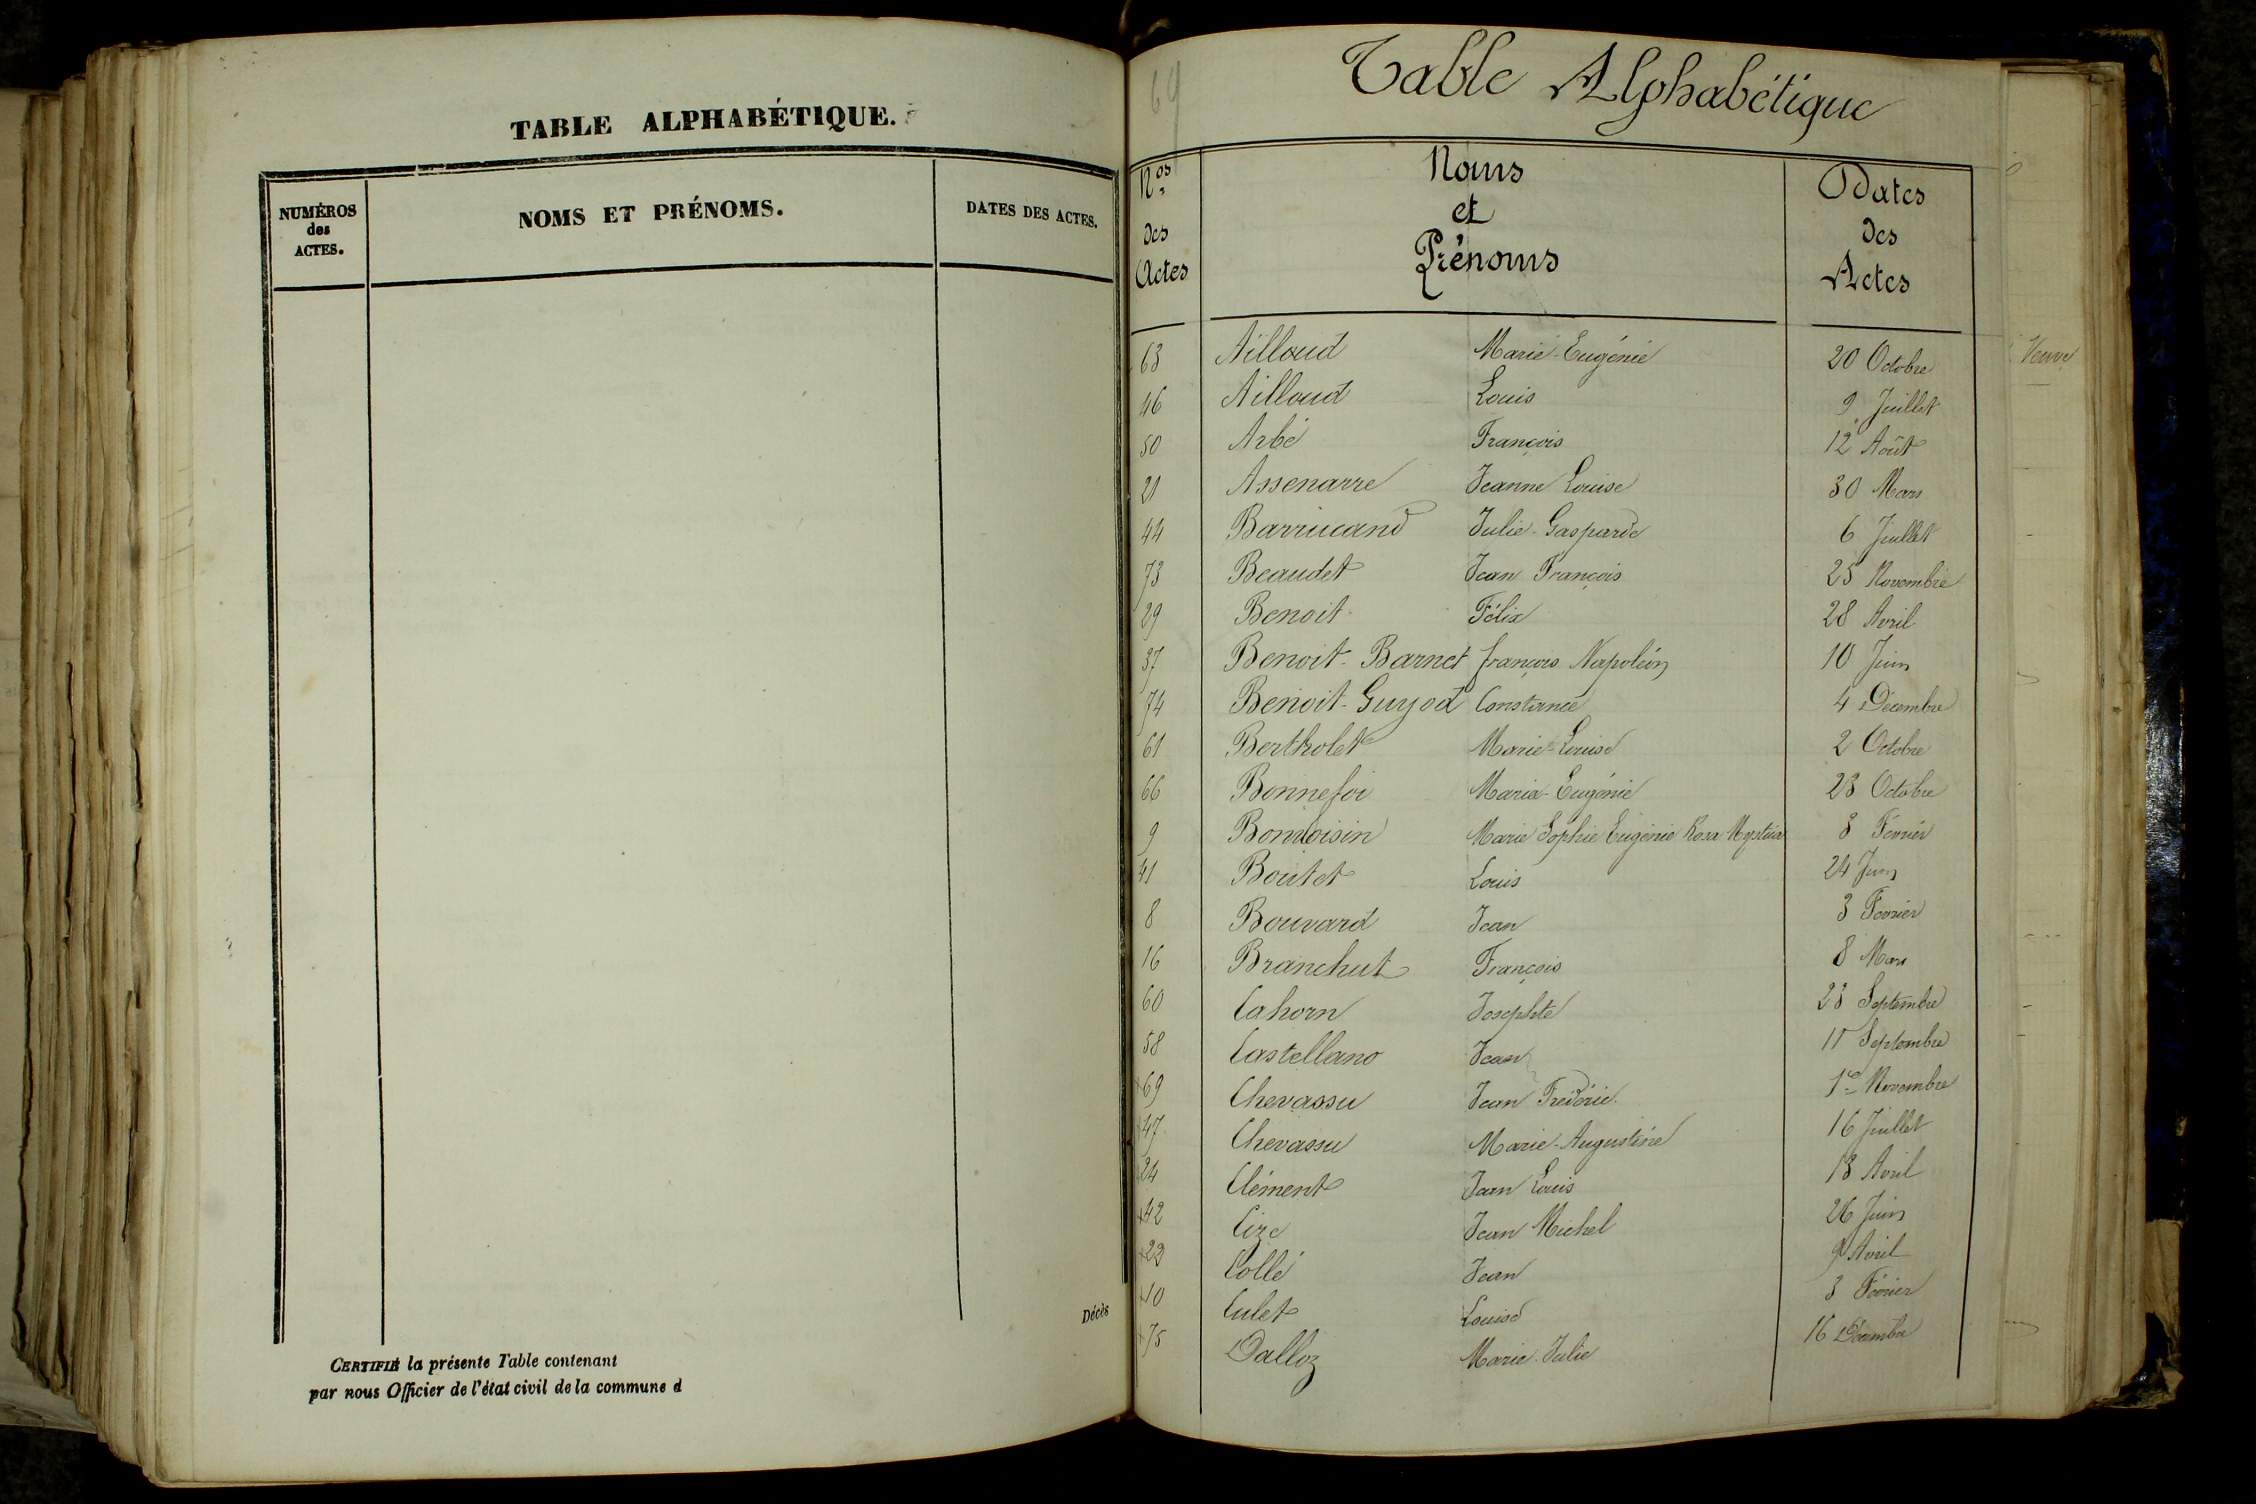 TABLE ALPHABÉTIQUE.
NUMÉROS des ACTES.
NOMS ET PRÉNOMS.
DATES DES ACTES.
Décès
CERTIFIÉ la présente Table contenant
par nous Officier de l'état civil de la commune d
69
Table Alphabétique
Nos des Actes
Noms et Prénoms
Dates des Actes
63 Ailloud Marie-Eugénie 20 Octobre
46 Ailloud Louis 9 Juillet
50 Arbé François 12 Août
21 Assenarre Jeanne Louise 30 Mars
44 Barrucand Julie-Gasparde 6 Juillet
73 Beaudet Jean François 25 Novembre
29 Benoit Félix 28 Avril
37 Benoit-Barnet françois Napoléon 10 Juin
74 Benoit-Guyod Constance 4 Décembre
61 Bertholet Marie-Louise 2 Octobre
66 Bonnefoi Maria-Eugénie 23 Octobre
9 Bonvoisin Marie Sophie Eugénie Rosa 3 Février
41 Boutet Louis 24 Juin
8 Bouvard Jean 3 Février
16 Branchut François 8 Mars
60 Cahorn Josephte 23 Septembre
58 Castellano Jean 11 Septembre
69 Chevassu Jean Frédéric 1er Novembre
47 Chevassu Marie-Augustine 16 Juillet
24 Clément Jean Louis 13 Avril
42 Cize Jean Michel 26 Juin
23 Collé Jean 9 Avril
10 Culet Louise 3 Février
75 Dalloz Marie-Julie 16 Décembre
Veuve